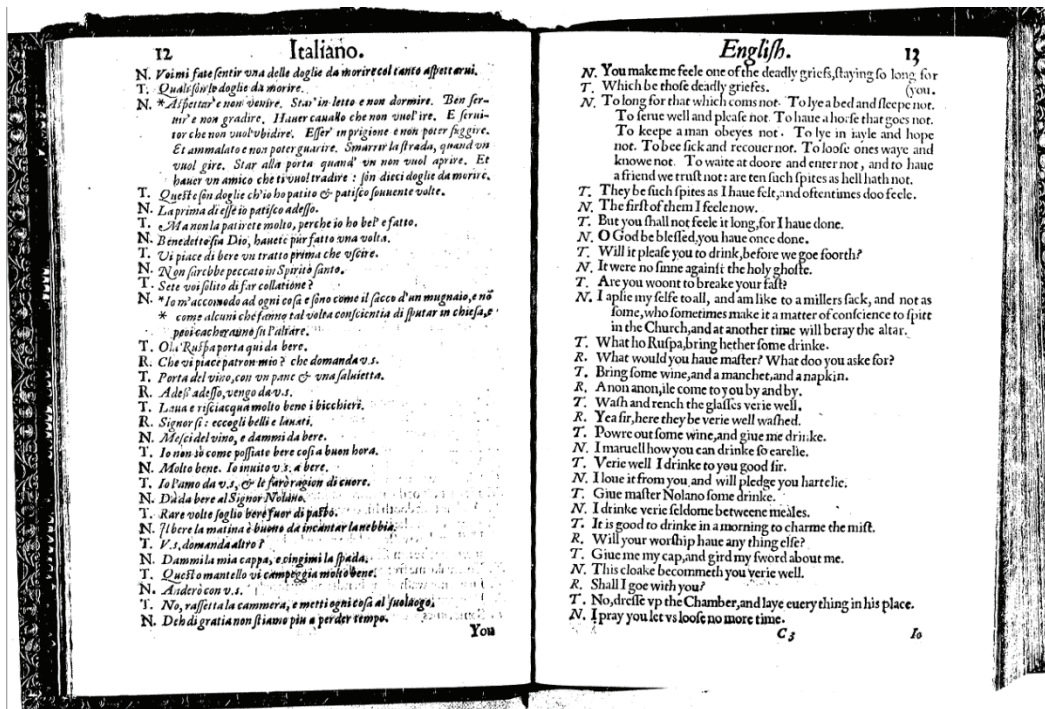 12 Italiano.
N. Voi mi fate sentir vna delle doglie da morire col tanto aspettarui.
T. Quali son le doglie da morire.
N. *Aspettar' e non venire. Star' in letto e non dormire. Ben ser-
uir' e non gradire. Hauer cauallo che non vuol' ire. E serui-
tor che non vuol' vbidire. Esser' in prigione e non poter fuggire.
Et ammalato e non poter guarire. Smarrir la strada, quand' vn
vuol gire. Star alla porta quand' vn non vuol aprire. Et
hauer vn amico che ti vuol tradire : son dieci doglie da morire.
T. Queste son doglie ch'io ho patito & patisco souuente volte.
N. La prima di esse io patisco adesso.
T. Ma non la patirete molto, perche io ho bel' e fatto.
N. Benedetto sia Dio, hauete pur fatto vna volta.
T. Vi piace di bere vn tratto prima che vscire.
N. Non sarebbe peccato in Spirito santo.
T. Sete voi solito di far collatione?
N. *Io m'accomodo ad ogni cosa e sono come il sacco d'un mugnaio, e nõ
* come alcuni che fanno tal volta conscientia di sputar in chiesa, e
poi cacheranno sù l'altare.
T. Ola Ruspa porta qui da bere.
R. Che vi piace patron mio ? che domanda v.s.
T. Porta del vino, con vn pane & vna saluietta.
R. Adess' adesso, vengo da v.s.
T. Laua e risciacqua molto bene i bicchieri.
R. Signor si : eccogli belli e lauati.
N. Mesci del vino, e dammi da bere.
T. Io non sò come possiate bere cosi a buon hora.
N. Molto bene. Io inuito v.s. a bere.
T. Io l'amo da v.s, & le farò ragion di cuore.
N. Dà da bere al Signor Nolano.
T. Rare volte soglio bere fuor di pasto.
N. Il bere la matina è buono da incantar la nebbia.
T. V.s, domanda altro ?
N. Dammi la mia cappa, e cingimi la spada.
T. Questo mantello vi campeggia molto bene.
N. Anderò con v.s.
T. No, rassetta la cammera, e metti ogni cosa al suo luogo.
N. Deh di gratia non stiamo piu a perder tempo.
You
English. 13
N. You make me feele one of the deadly griefs, staying so long for
T. Which be those deadly griefes. (you.
N. To long for that which coms not. To lye a bed and sleepe not.
To serue well and please not. To haue a horse that goes not.
To keepe a man obeyes not. To lye in iayle and hope
not. To bee sick and recouer not. To loose ones waye and
knowe not. To waite at doore and enter not, and to haue
a friend we trust not: are ten such spites as hell hath not.
T. They be such spites as I haue felt, and oftentimes doo feele.
N. The first of them I feele now.
T. But you shall not feele it long, for I haue done.
N. O God be blessed, you haue once done.
T. Will it please you to drink, before we goe foorth?
N. It were no sinne against the holy ghoste.
T. Are you woont to breake your fast?
N. I aplie my selfe to all, and am like to a millers sack, and not as
some, who sometimes make it a matter of conscience to spitt
in the Church, and at another time will beray the altar.
T. What ho Ruspa, bring hether some drinke.
R. What would you haue master? What doo you aske for?
T. Bring some wine, and a manchet, and a napkin.
R. Anon anon, ile come to you by and by.
T. Wash and rench the glasses verie well.
R. Yea sir, here they be verie well washed.
T. Powre out some wine, and giue me drinke.
N. I maruell how you can drinke so earelie.
T. Verie well I drinke to you good sir.
N. I loue it from you, and will pledge you hartelie.
T. Giue master Nolano some drinke.
N. I drinke verie seldome betweene meales.
T. It is good to drinke in a morning to charme the mist.
R. Will your worship haue any thing else?
T. Giue me my cap, and gird my sword about me.
N. This cloake becommeth you verie well.
R. Shall I goe with you?
T. No, dresse vp the Chamber, and laye euery thing in his place.
N. I pray you let vs loose no more time.
C 3 Io